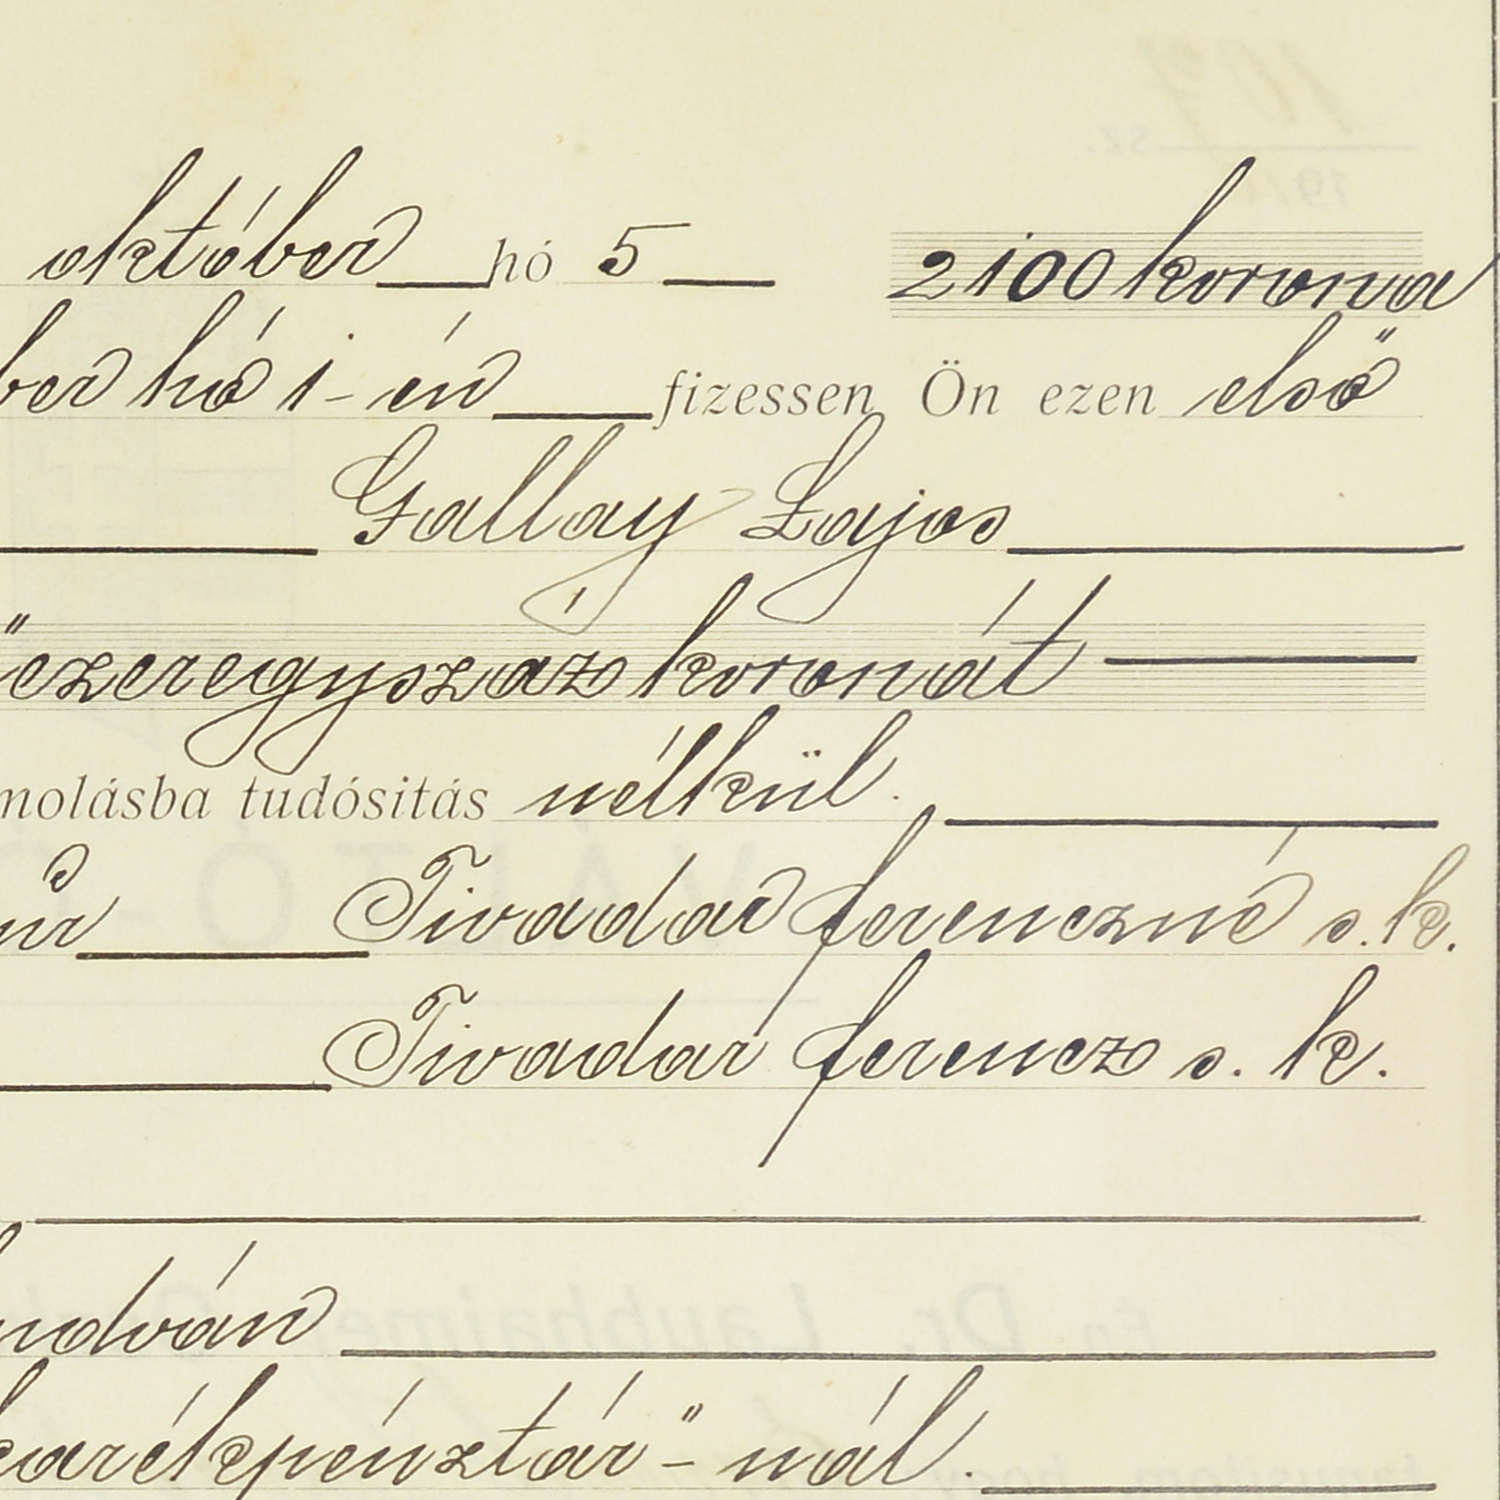 október hó 5 2100 korona
ber hó 1-én fizessen Ön ezen első
Gallay Lajos
ezeregyszáz koronát
molásba tudósitás nélkül.
úr Tivadar Ferenczné s. k.
Tivadar Ferencz s. k.
ndván
karékpénztár"-nál.